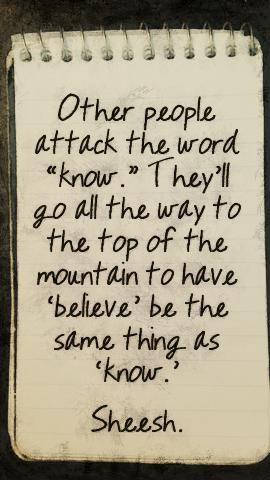 Other people
attack the word
“know.” They’ll
go all the way to
the top of the
mountain to have
‘believe’ be the
same thing as
‘know.’
Sheesh.